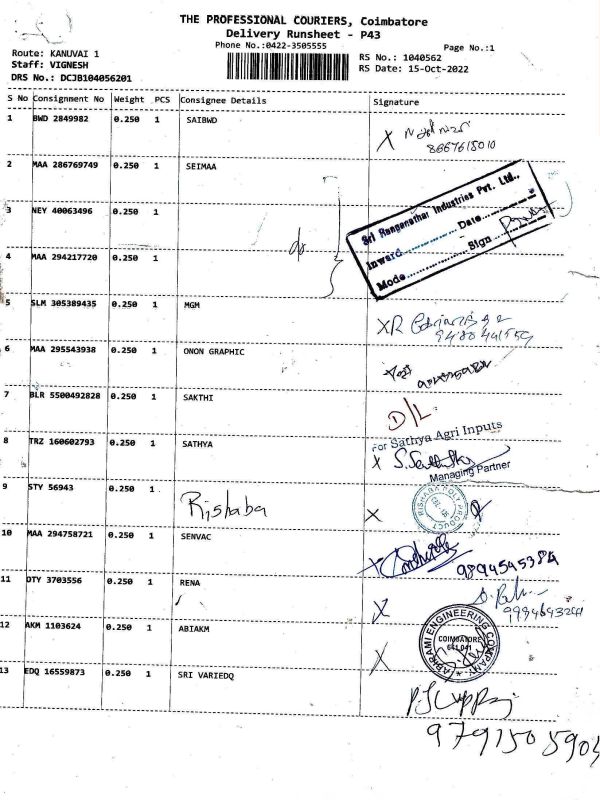 THE PROFESSIONAL COURIERS, Coimbatore
Delivery Runsheet - P43
Phone No.:0422-3505555
Page No.:1
Route: KANUVAI 1
Staff: VIGNESH
DRS No.: DCJB104056201
RS No.: 1040562
RS Date: 15-Oct-2022
S No Consignment No Weight PCS Consignee Details Signature
1 BWD 2849982 0.250 1 SAIBWD
X
8667615010
2 MAA 286769749 0.250 1 SEIMAA
3 NEY 40063496 0.250 1
4 MAA 294217720 0.250 1
do
Sri Ranganathar Industries Pvt. Ltd.,
Inward..............Date..............
Mode..............Sign..............
5 SLM 305389435 0.250 1 MGM
XR
6 MAA 295543938 0.250 1 ONON GRAPHIC
7 BLR 5500492828 0.250 1 SAKTHI
D/L
8 TRZ 160602793 0.250 1 SATHYA
For Sathya Agri Inputs
X
Managing Partner
9 STY 56943 0.250 1 Rishaba
X
10 MAA 294758721 0.250 1 SENVAC
X
9894545384
11 DTY 3703556 0.250 1 RENA
X
9994693241
12 AKM 1103624 0.250 1 ABIAKM
X
ABIRAMI ENGINEERING COMPANY
COIMBATORE
641 041
13 EDQ 16559873 0.250 1 SRI VARIEDQ
9791505904